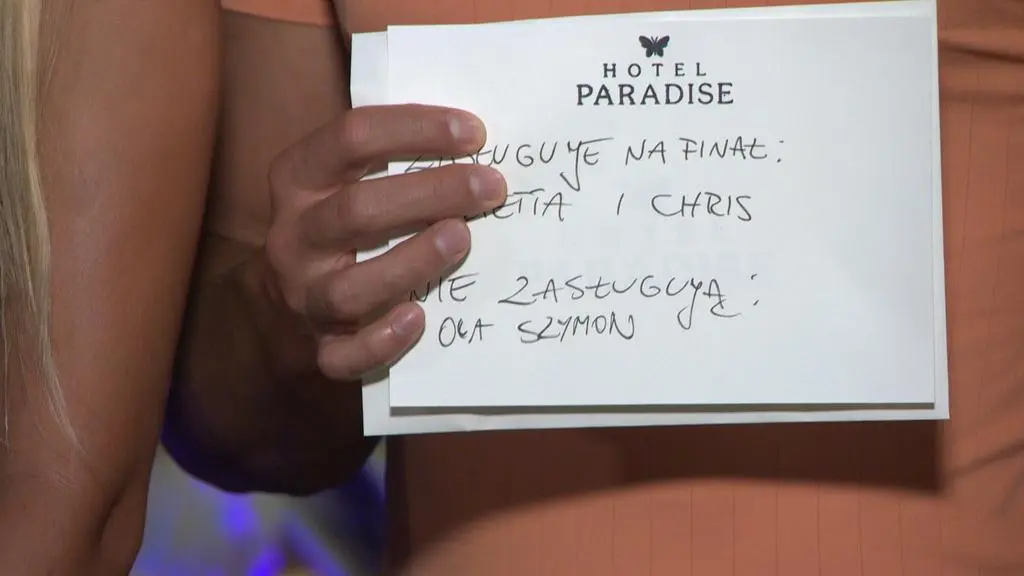 HOTEL
PARADISE
ZASŁUGUJE NA FINAŁ:
I CHRIS
NIE ZASŁUGUJĄ:
OLA SZYMON